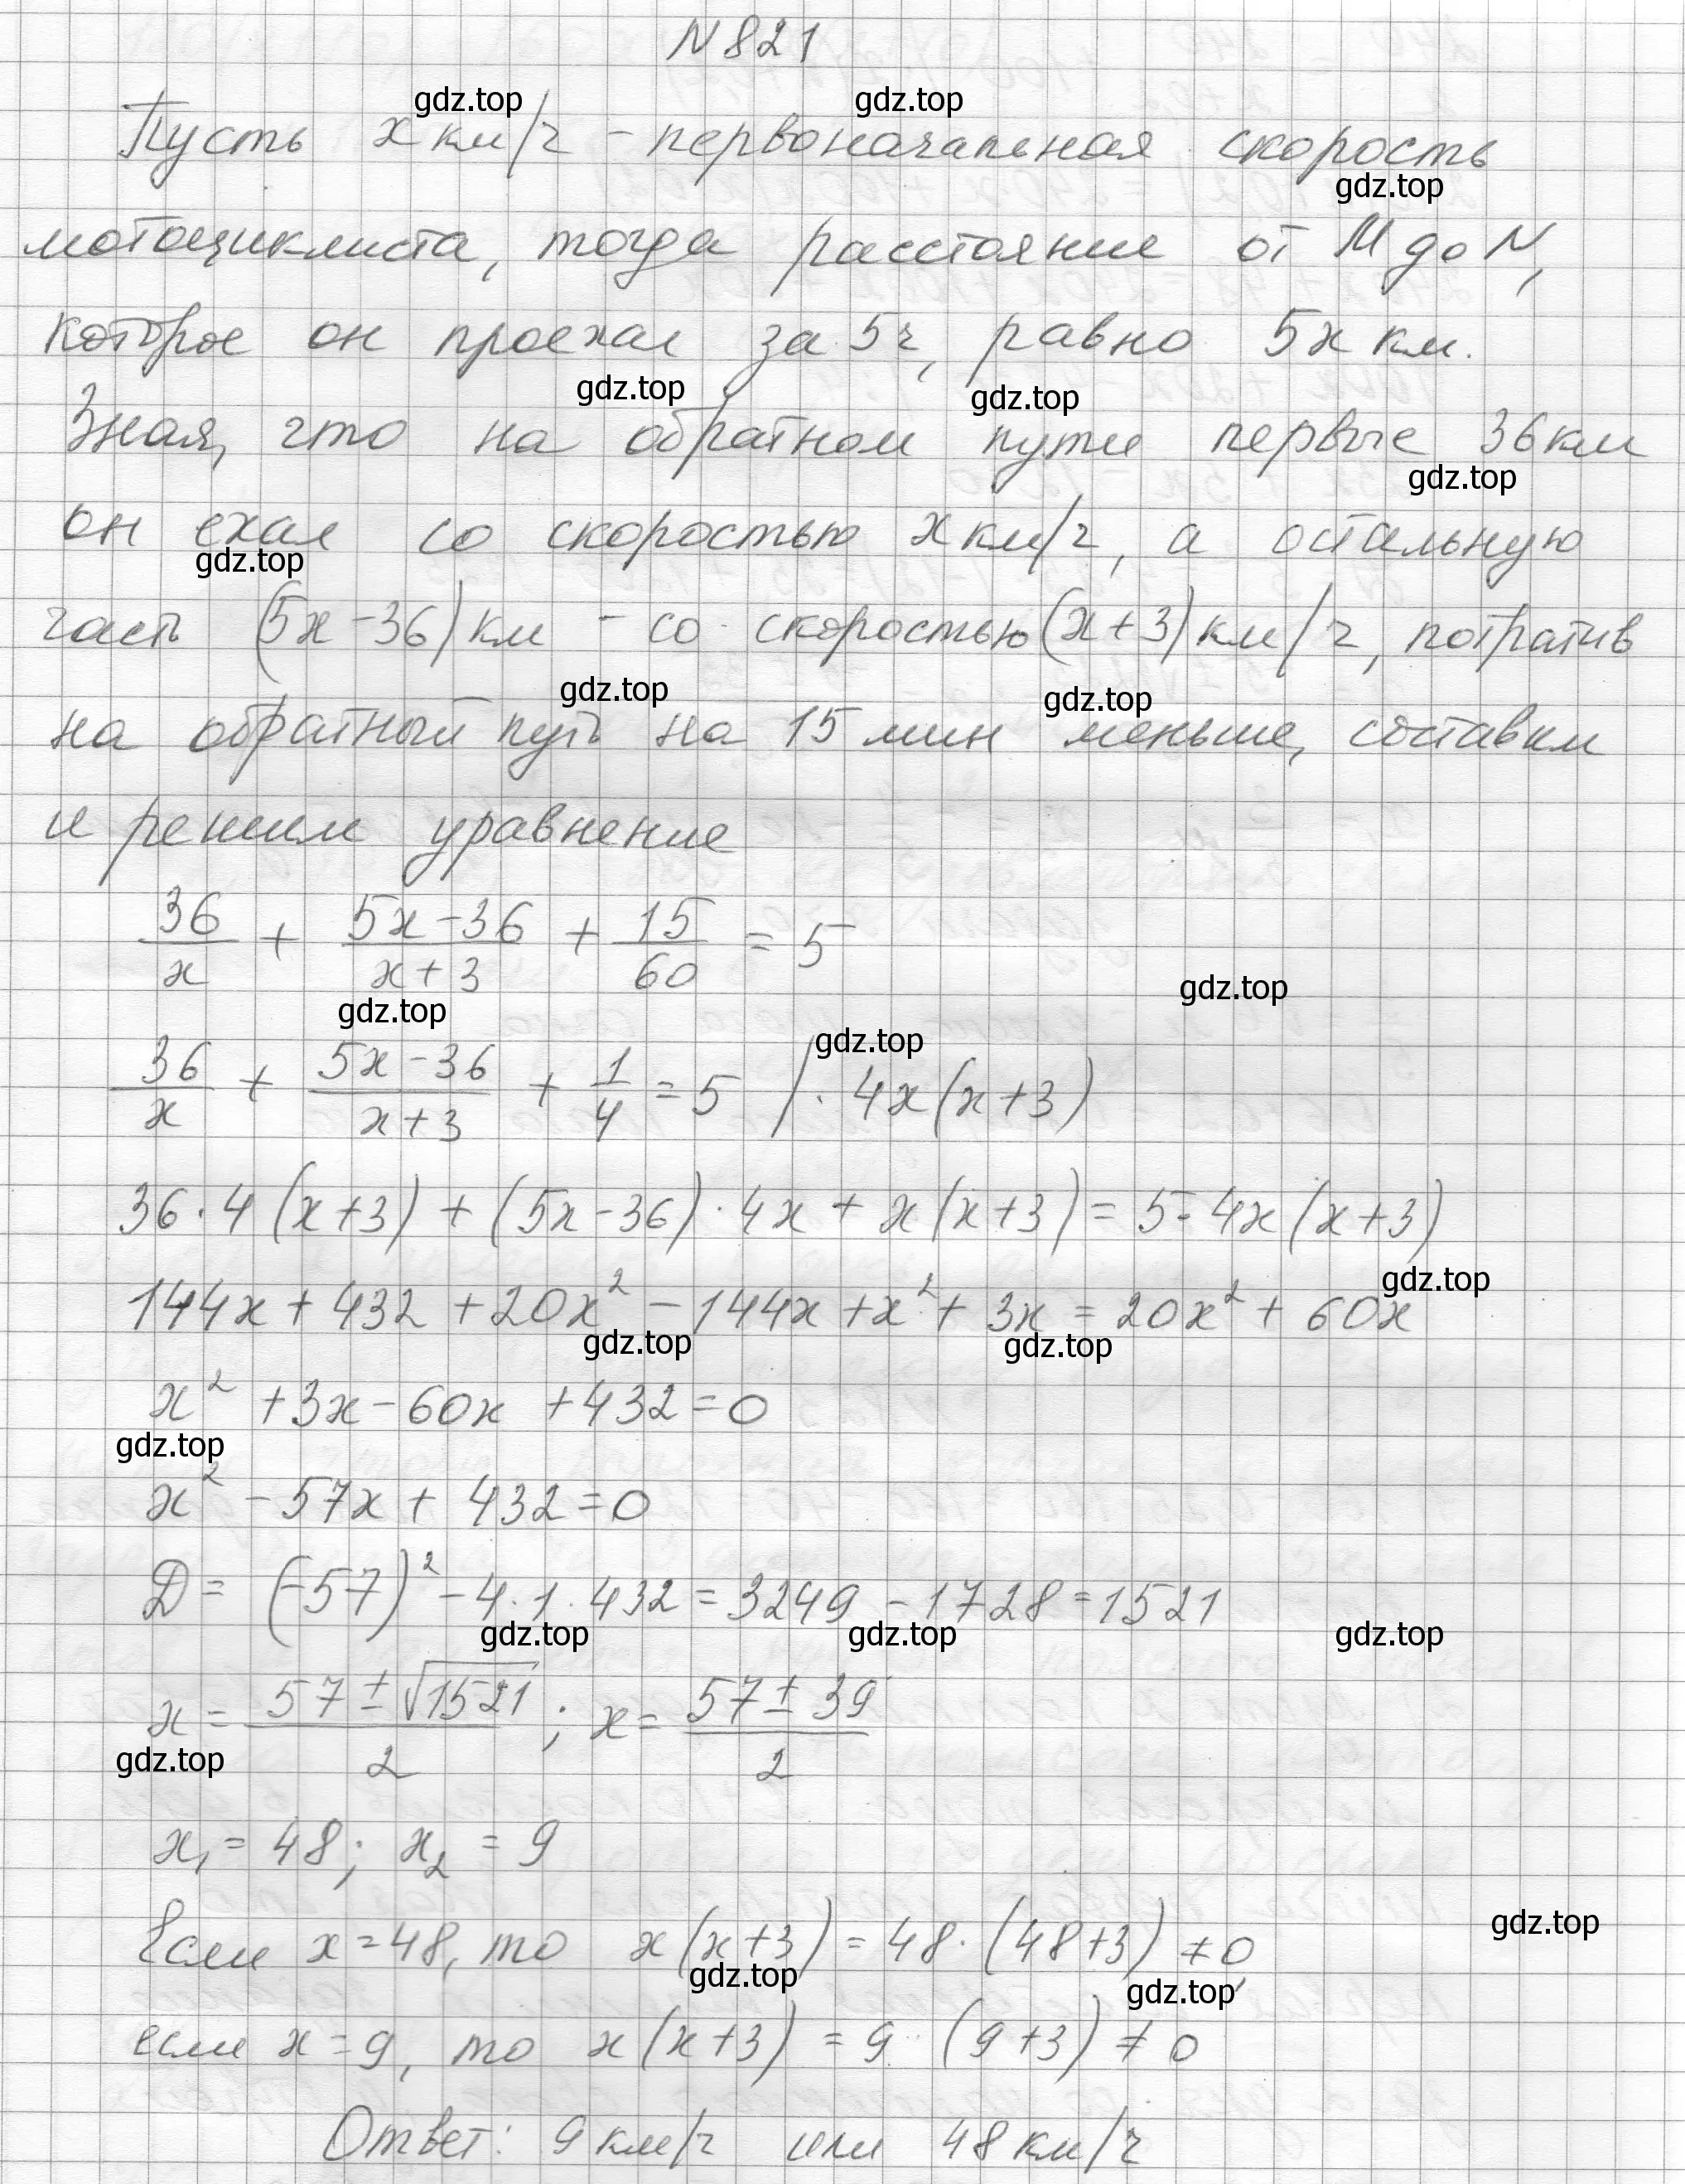 N 821
gdz.top gdz.top
Пусть x км/ч - первоначальная скорость
gdz.top
мотоциклиста, тогда расстояние от M до N,
которое он проехал за 5ч, равно 5x км.
gdz.top gdz.top
Зная, что на обратном пути первые 36 км
gdz.top
он ехал со скоростью x км/ч, а остальную
gdz.top
часть (5x-36) км - со скоростью (x+3) км/ч, потратив
gdz.top gdz.top
на обратный путь на 15 мин меньше, составим
и решим уравнение
36/x + (5x-36)/(x+3) + 15/60 = 5
gdz.top gdz.top
gdz.top
36/x + (5x-36)/(x+3) + 1/4 = 5 / · 4x(x+3)
36·4(x+3) + (5x-36)·4x + x(x+3) = 5·4x(x+3)
gdz.top
144x + 432 + 20x² - 144x + x² + 3x = 20x² + 60x
gdz.top gdz.top
x² + 3x - 60x + 432 = 0
gdz.top
x² - 57x + 432 = 0
D = (-57)² - 4·1·432 = 3249 - 1728 = 1521
gdz.top gdz.top gdz.top
x = (57 ± √1521)/2 ; x = (57 ± 39)/2
gdz.top
x₁ = 48; x₂ = 9
gdz.top
Если x = 48, то x(x+3) = 48·(48+3) ≠ 0,
gdz.top gdz.top
если x = 9, то x(x+3) = 9·(9+3) ≠ 0
Ответ: 9 км/ч или 48 км/ч